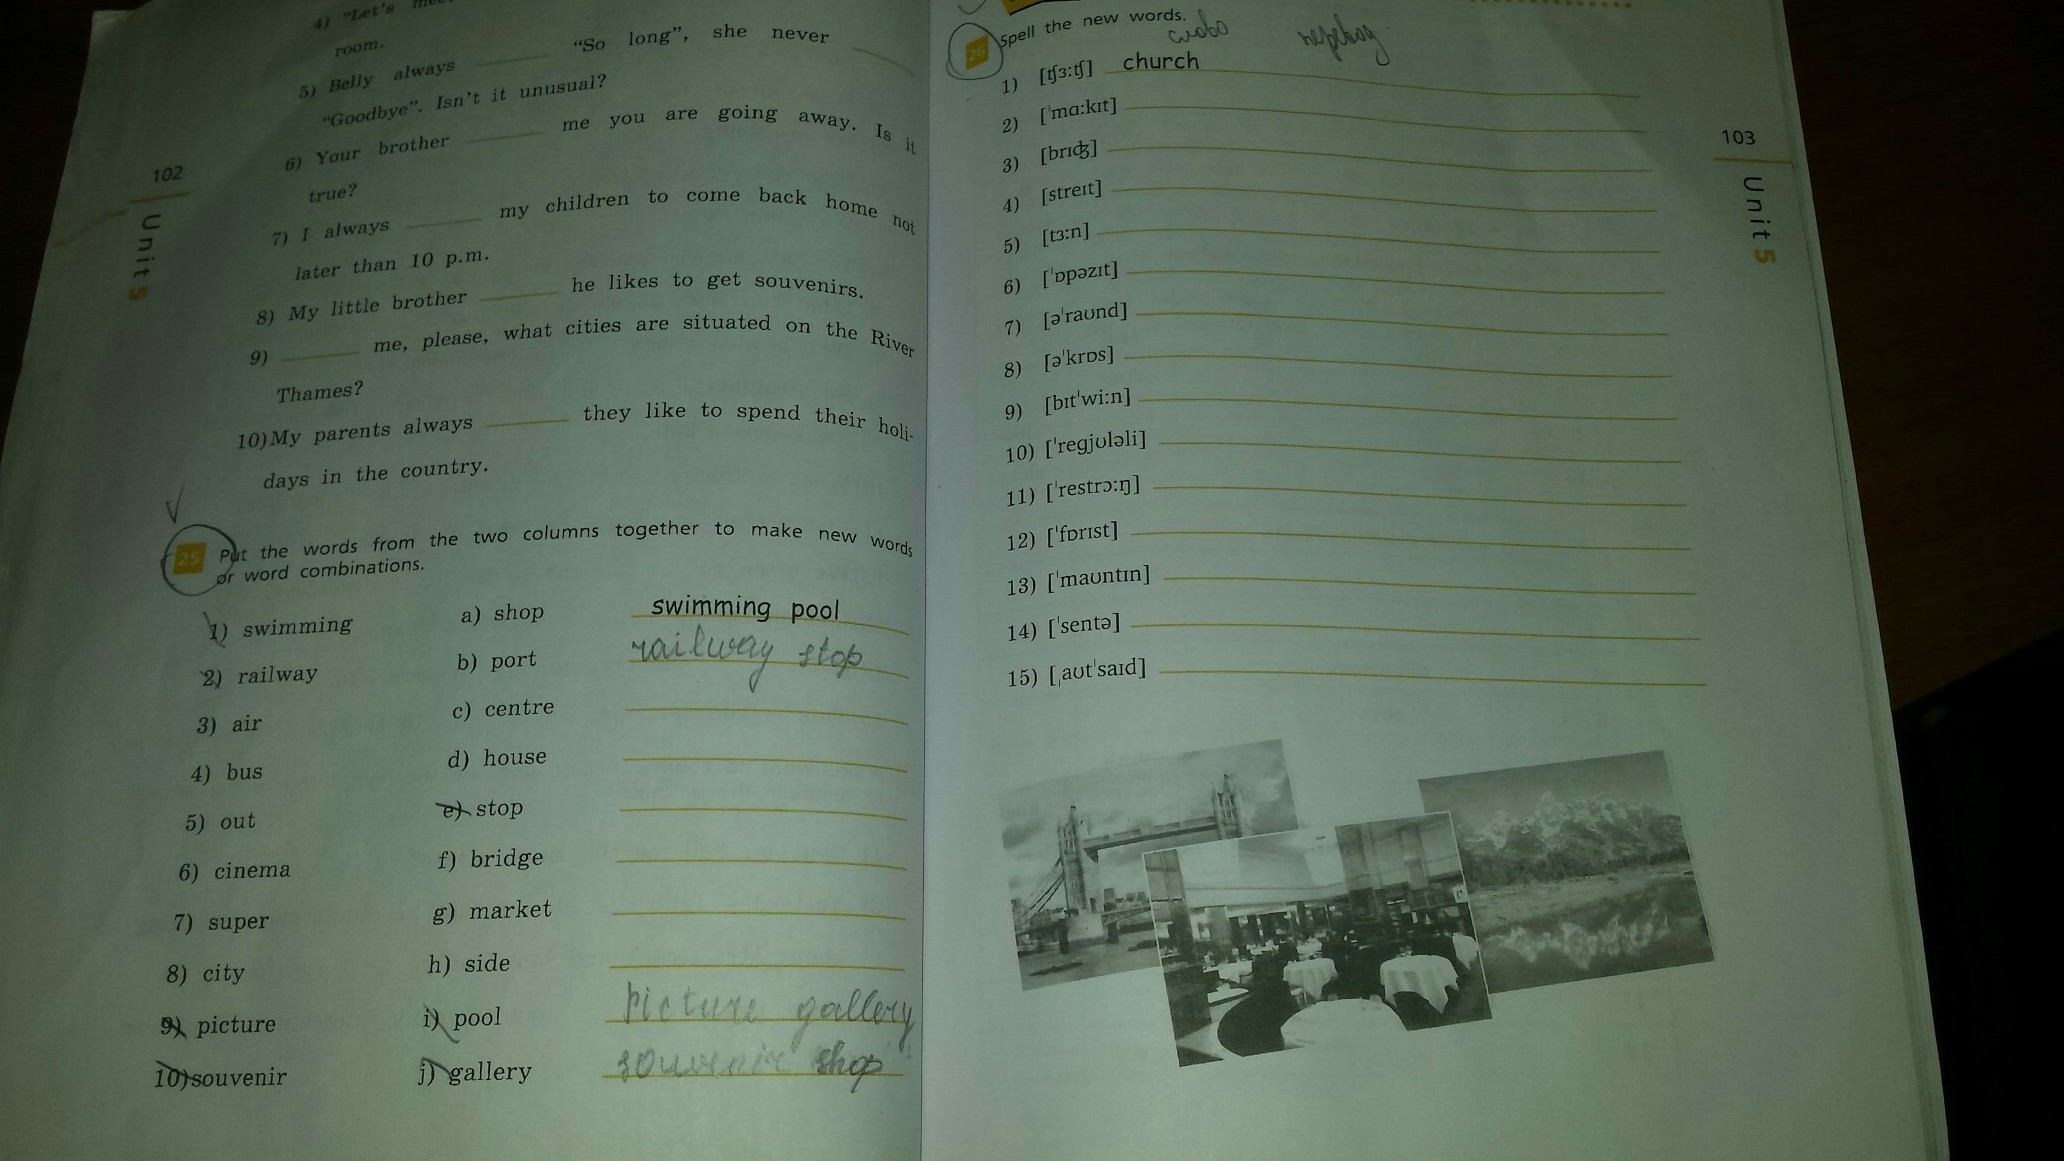 4) "Let's
room.
5) Belly always ______ "So long", she never ______
"Goodbye". Isn't it unusual?
6) Your brother ______ me you are going away. Is it
true?
7) I always ______ my children to come back home not
later than 10 p.m.
8) My little brother ______ he likes to get souvenirs.
9) ______ me, please, what cities are situated on the River
Thames?
10) My parents always ______ they like to spend their holi-
days in the country.
102
Unit 5
25 Put the words from the two columns together to make new words
or word combinations.
1) swimming a) shop swimming pool
2) railway b) port railway stop
3) air c) centre
4) bus d) house
5) out e) stop
6) cinema f) bridge
7) super g) market
8) city h) side
9) picture i) pool picture gallery
10) souvenir j) gallery souvenir shop
26 Spell the new words.
слово перевод
1) [ʧɜ:ʧ] church
2) [ˈmɑ:kɪt]
3) [brɪʤ]
4) [streɪt]
5) [tɜ:n]
6) [ˈɒpəzɪt]
7) [əˈraʊnd]
8) [əˈkrɒs]
9) [bɪtˈwi:n]
10) [ˈregjʊləli]
11) [ˈrestrɔ:ŋ]
12) [ˈfɒrɪst]
13) [ˈmaʊntɪn]
14) [ˈsentə]
15) [ˌaʊtˈsaɪd]
103
Unit 5